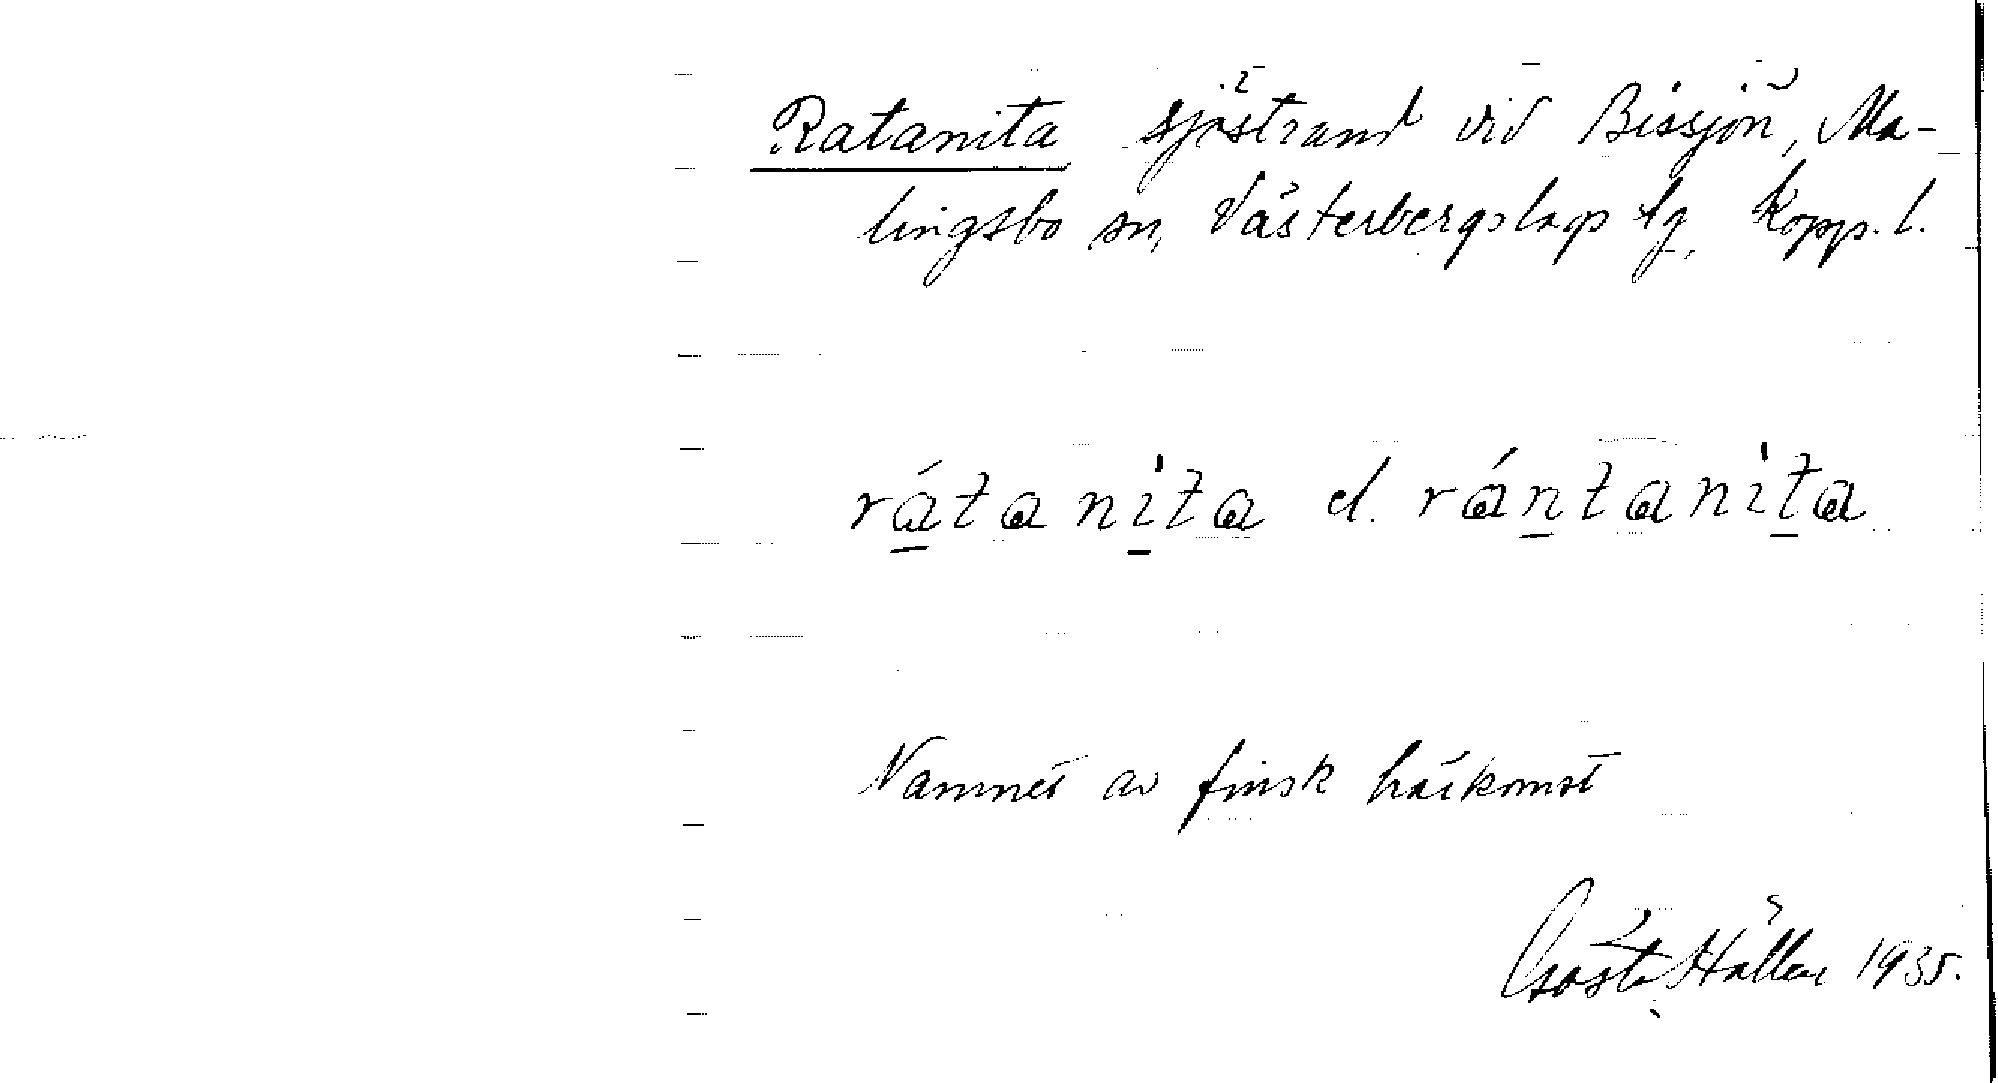 Ratanita sjöstrand vid Bissjön, Ma-
lingsbo sn, Västerbergslags tg, Kopp. l.
rátanìta el. rántanìta
Namnet av finsk härkomst
Gösta Hallen 1935.